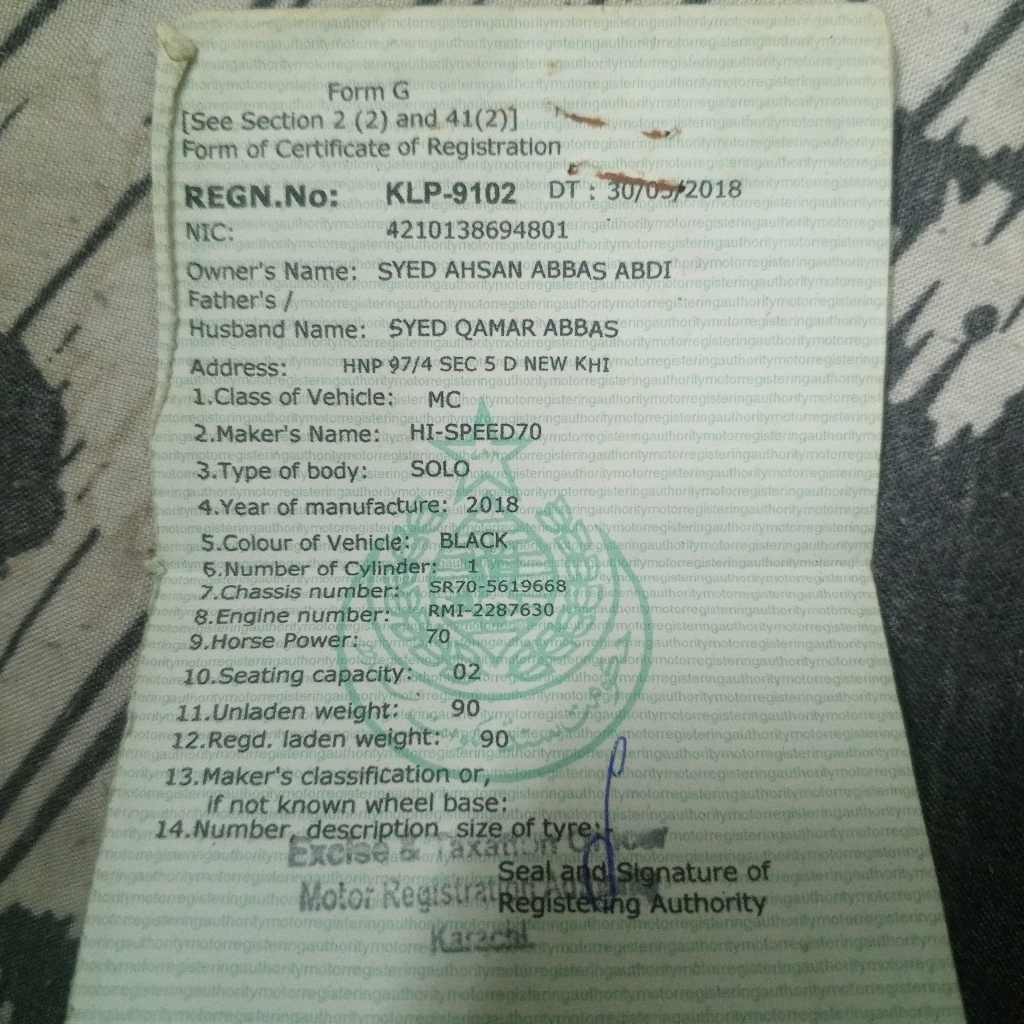 Form G
[See Section 2 (2) and 41(2)]
Form of Certificate of Registration
REGN.No: KLP-9102 DT : 30/05/2018
NIC: 4210138694801
Owner's Name: SYED AHSAN ABBAS ABDI
Father's /
Husband Name: SYED QAMAR ABBAS
Address: HNP 97/4 SEC 5 D NEW KHI
1.Class of Vehicle: MC
2.Maker's Name: HI-SPEED70
3.Type of body: SOLO
4.Year of manufacture: 2018
5.Colour of Vehicle: BLACK
6.Number of Cylinder: 1
7.Chassis number: SR70-5619668
8.Engine number: RMI-2287630
9.Horse Power: 70
10.Seating capacity: 02
11.Unladen weight: 90
12.Regd. laden weight: 90
13.Maker's classification or,
if not known wheel base:
14.Number, description size of tyre:-
Excise & Taxation Officer
Seal and Signature of
Motor Registration
Registering Authority
Karachi.